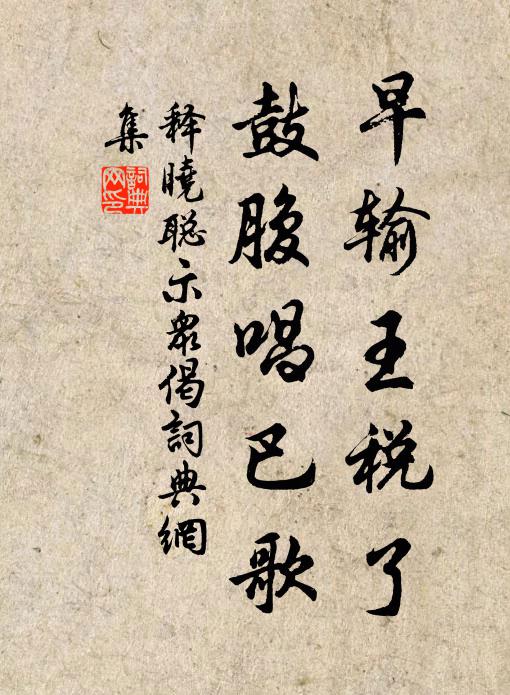 早输王税了
鼓腹唱巴歌
释晓聪示众偈词典網
集
詞典
网印